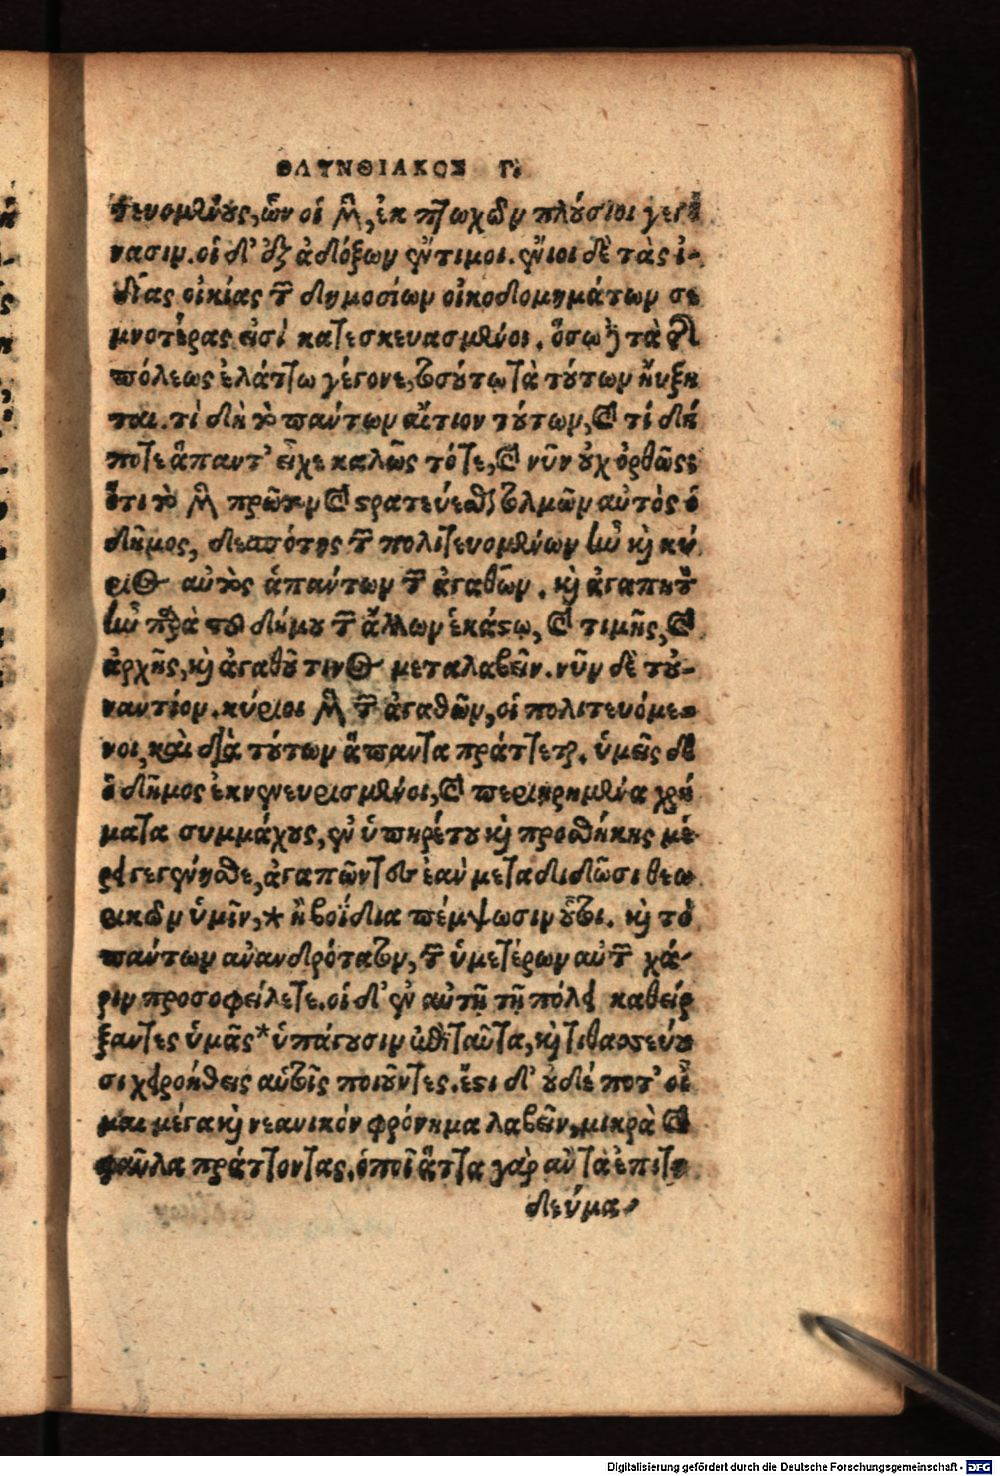 ΟΛΥΝΘΙΑΚΟΣ Γ.
τευομένους, ὧν οἱ μὲν, ἐκ πτωχῶν πλούσιοι γεγό
νασιν. οἱ δ' ἐξ ἀδόξων ἔντιμοι. ἔνιοι δὲ τὰς ἰ-
δίας οἰκίας τῶν δημοσίων οἰκοδομημάτων σε
μνοτέρας εἰσὶ κατεσκευασμένοι. ὅσῳ δὲ τὰ τῆς
πόλεως ἐλάττω γέγονε, τοσούτῳ τὰ τούτων ηὔξη
ται. τί δὴ τὸ πάντων αἴτιον τούτων, καὶ τί δή
ποτε ἅπαντ' εἶχε καλῶς τότε, καὶ νῦν οὐχ ὀρθῶς;
ὅτι τὸ μὲν πρῶτον καὶ στρατεύεσθαι τολμῶν αὐτὸς ὁ
δῆμος, δεσπότης τῶν πολιτευομένων ἦν καὶ κύ
ριος αὐτὸς ἁπάντων τῶν ἀγαθῶν. καὶ ἀγαπητὸν
ἦν παρὰ τοῦ δήμου τῶν ἄλλων ἑκάστῳ, καὶ τιμῆς, καὶ
ἀρχῆς, καὶ ἀγαθοῦ τινος μεταλαβεῖν. νῦν δὲ τοὐ-
ναντίον. κύριοι μὲν τῶν ἀγαθῶν, οἱ πολιτευόμε-
νοι, καὶ διὰ τούτων ἅπαντα πράττεται. ὑμεῖς δὲ
ὁ δῆμος ἐκνενευρισμένοι, καὶ περιῃρημένοι χρή
ματα συμμάχους, ἐν ὑπηρέτου καὶ προσθήκης μέ-
ρει γεγένησθε, ἀγαπῶντες ἐὰν μεταδιδῶσι θεω
ρικῶν ὑμῖν, * ἢ βοΐδια πέμψωσιν οὗτοι. καὶ τὸ
πάντων ἀνανδρότατον, τῶν ὑμετέρων αὐτῶν χά-
ριν προσοφείλετε. οἱ δ' ἐν αὐτῇ τῇ πόλει καθείρ
ξαντες ὑμᾶς * ὑπάγουσιν ἐπὶ ταῦτα, καὶ τιθασσεύου
σι χειροήθεις αὑτοῖς ποιοῦντες. ἔστι δ' οὐδέ ποτ' οἶ
μαι μέγα καὶ νεανικόν φρόνημα λαβεῖν, μικρὰ καὶ
φαῦλα πράττοντας. ὁποῖ' ἄττα γὰρ ἂν τὰ ἐπιτη
δεύμα-
Digitalisierung gefördert durch die Deutsche Forschungsgemeinschaft - DFG